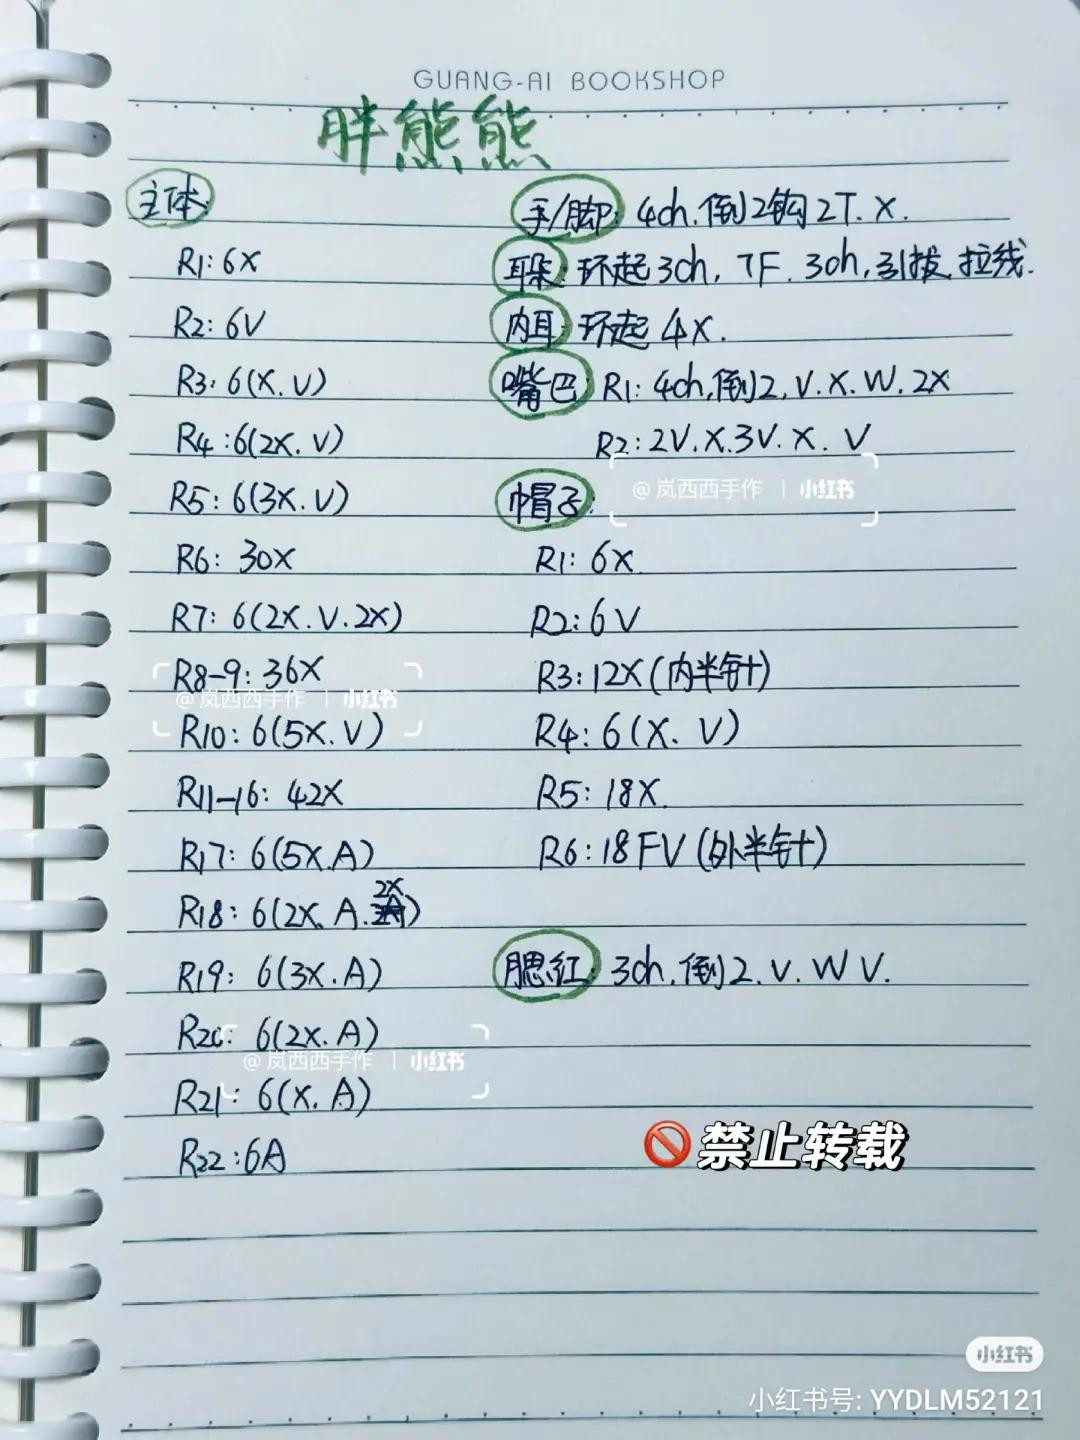 GUANG-AI BOOKSHOP
胖熊熊
主体:
R1: 6X
R2: 6V
R3: 6(X.V)
R4: 6(2X.V)
R5: 6(3X.V)
R6: 30X
R7: 6(2X.V.2X)
R8-9: 36X
@岚西西手作 | 小红书
R10: 6(5X.V)
R11-16: 42X
R17: 6(5X.A)
R18: 6(2X.A.2X)
R19: 6(3X.A)
R20: 6(2X.A)
@岚西西手作 | 小红书
R21: 6(X.A)
R22: 6A
手/脚: 4ch.倒2钩2T.X.
耳朵: 环起3ch, 7F.3ch,引拔.拉线.
内耳: 环起4X.
嘴巴: R1: 4ch,倒2,V.X.W.2X
R2: 2V.X.3V.X.V
@岚西西手作 | 小红书
帽子:
R1: 6X
R2: 6V
R3: 12X(内半针)
R4: 6(X.V)
R5: 18X.
R6: 18FV(外半针)
腮红: 3ch.倒2.V.W V.
禁止转载
小红书
小红书号: YYDLM52121